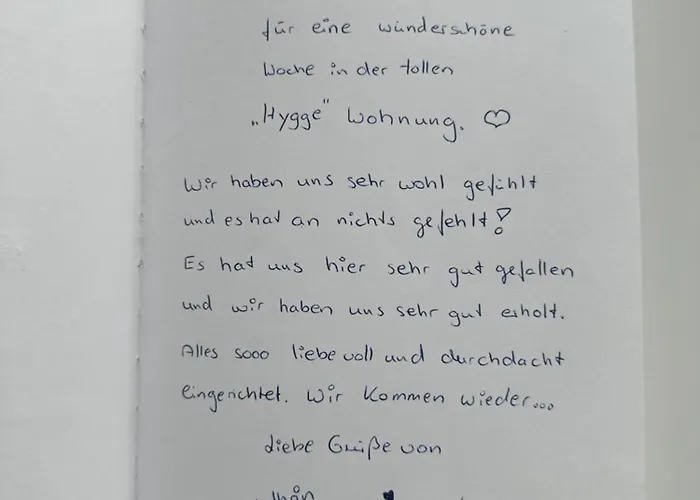 für eine wunderschöne
Woche in der tollen
„Hygge" Wohnung. ♡
Wir haben uns sehr wohl gefühlt
und es hat an nichts gefehlt!
Es hat uns hier sehr gut gefallen
und wir haben uns sehr gut erholt.
Alles sooo liebevoll und durchdacht
eingerichtet. Wir kommen wieder...
Liebe Grüße von